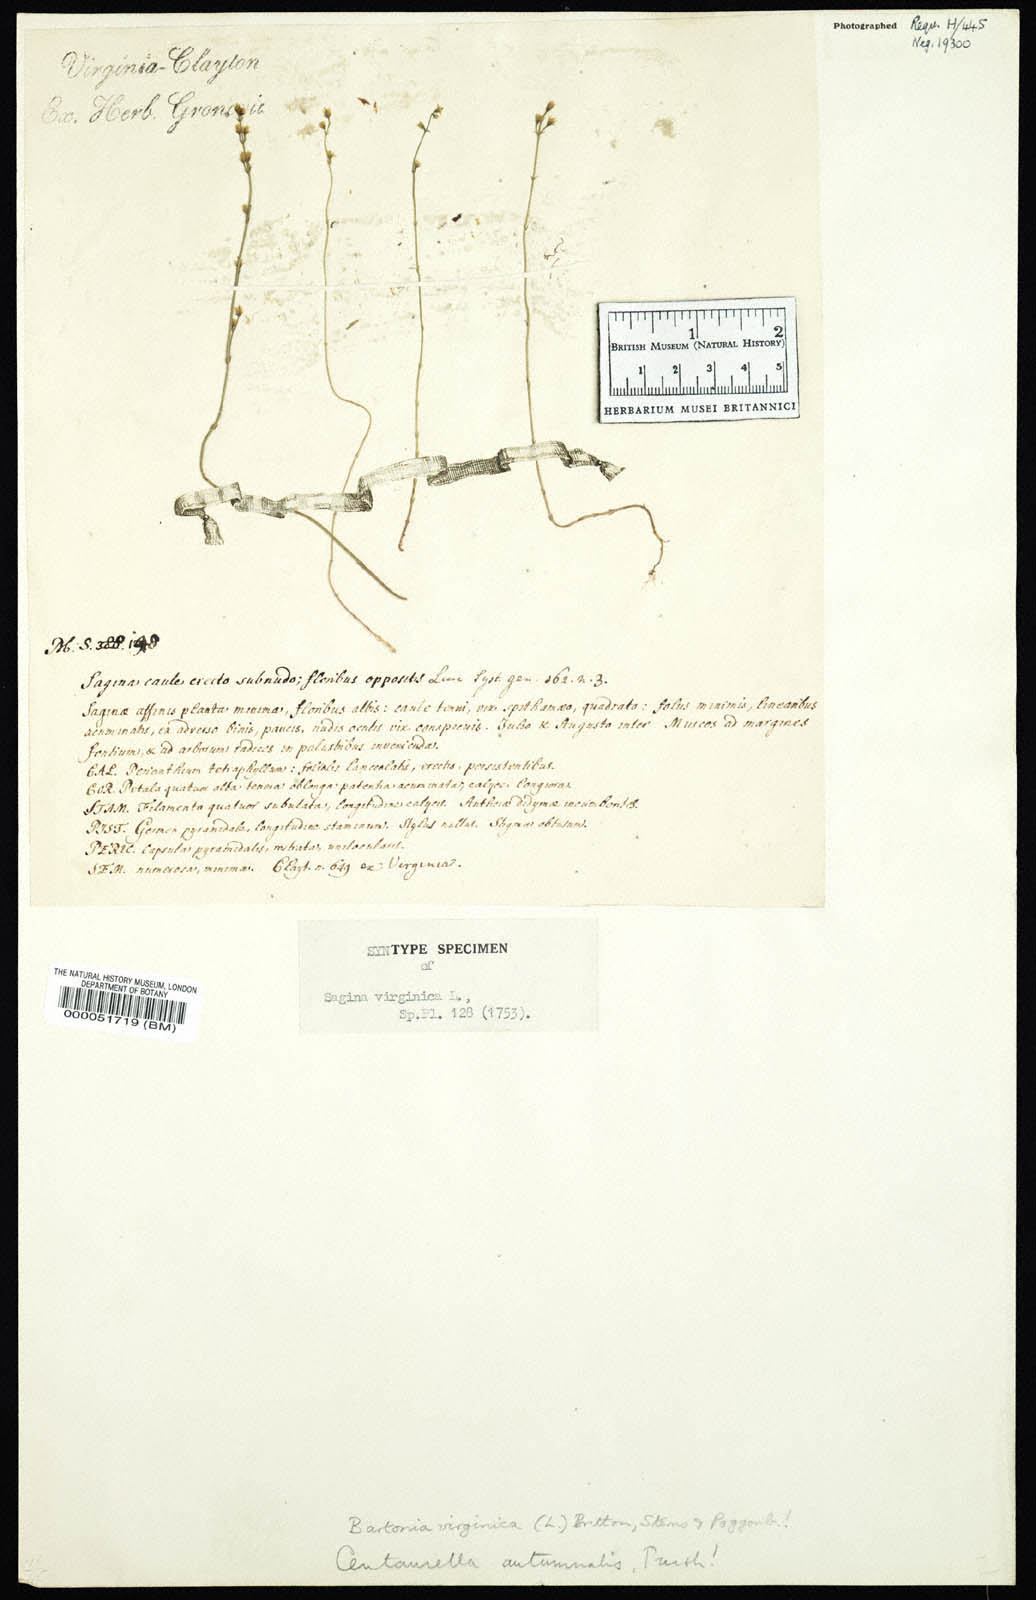 Photographed Requ. H/445
Neg. 19300
Virginia-Clayton
Ex. Herb. Gronovii
1 2
BRITISH MUSEUM (NATURAL HISTORY)
1 2 3 4 5
HERBARIUM MUSEI BRITANNICI
M.S. 198
Sagina caule erecto subnudo; floribus oppositis Linn Syst. gen. 162. n. 3.
Saginæ affinis planta minima, floribus albis: caule tenui, vix spithamæo, quadrato: foliis minimis, linearibus
acuminatis, ex adverso binis, paucis, nudis oculis vix conspicuis. Julio & Augusto inter Muscos ad margines
fontium, & ad arborum radices in palustribus invenienda.
CAL. Perianthium tetraphyllum: foliolis lanceolatis, erectis, persistentibus.
COR. Petala quatuor alba tenuia oblonga patentia acuminata, calyce longiora.
STAM. Filamenta quatuor subulata, longitudine calycis. Antheræ didymæ incumbentes.
PIST. Germen pyramidale, longitudine staminum. Stylus nullus. Stigma obtusum.
PERIC. Capsula pyramidalis, unilocularis.
SEM. numerosa, minima. Clayt. n. 649 ex Virginia.
SYNTYPE SPECIMEN
of
Sagina virginica L.,
Sp.Pl. 128 (1753).
THE NATURAL HISTORY MUSEUM, LONDON
DEPARTMENT OF BOTANY
000051719 (BM)
Bartonia virginica (L.) Britton, Sterns & Poggenb.!
Centaurella autumnalis, Pursh!